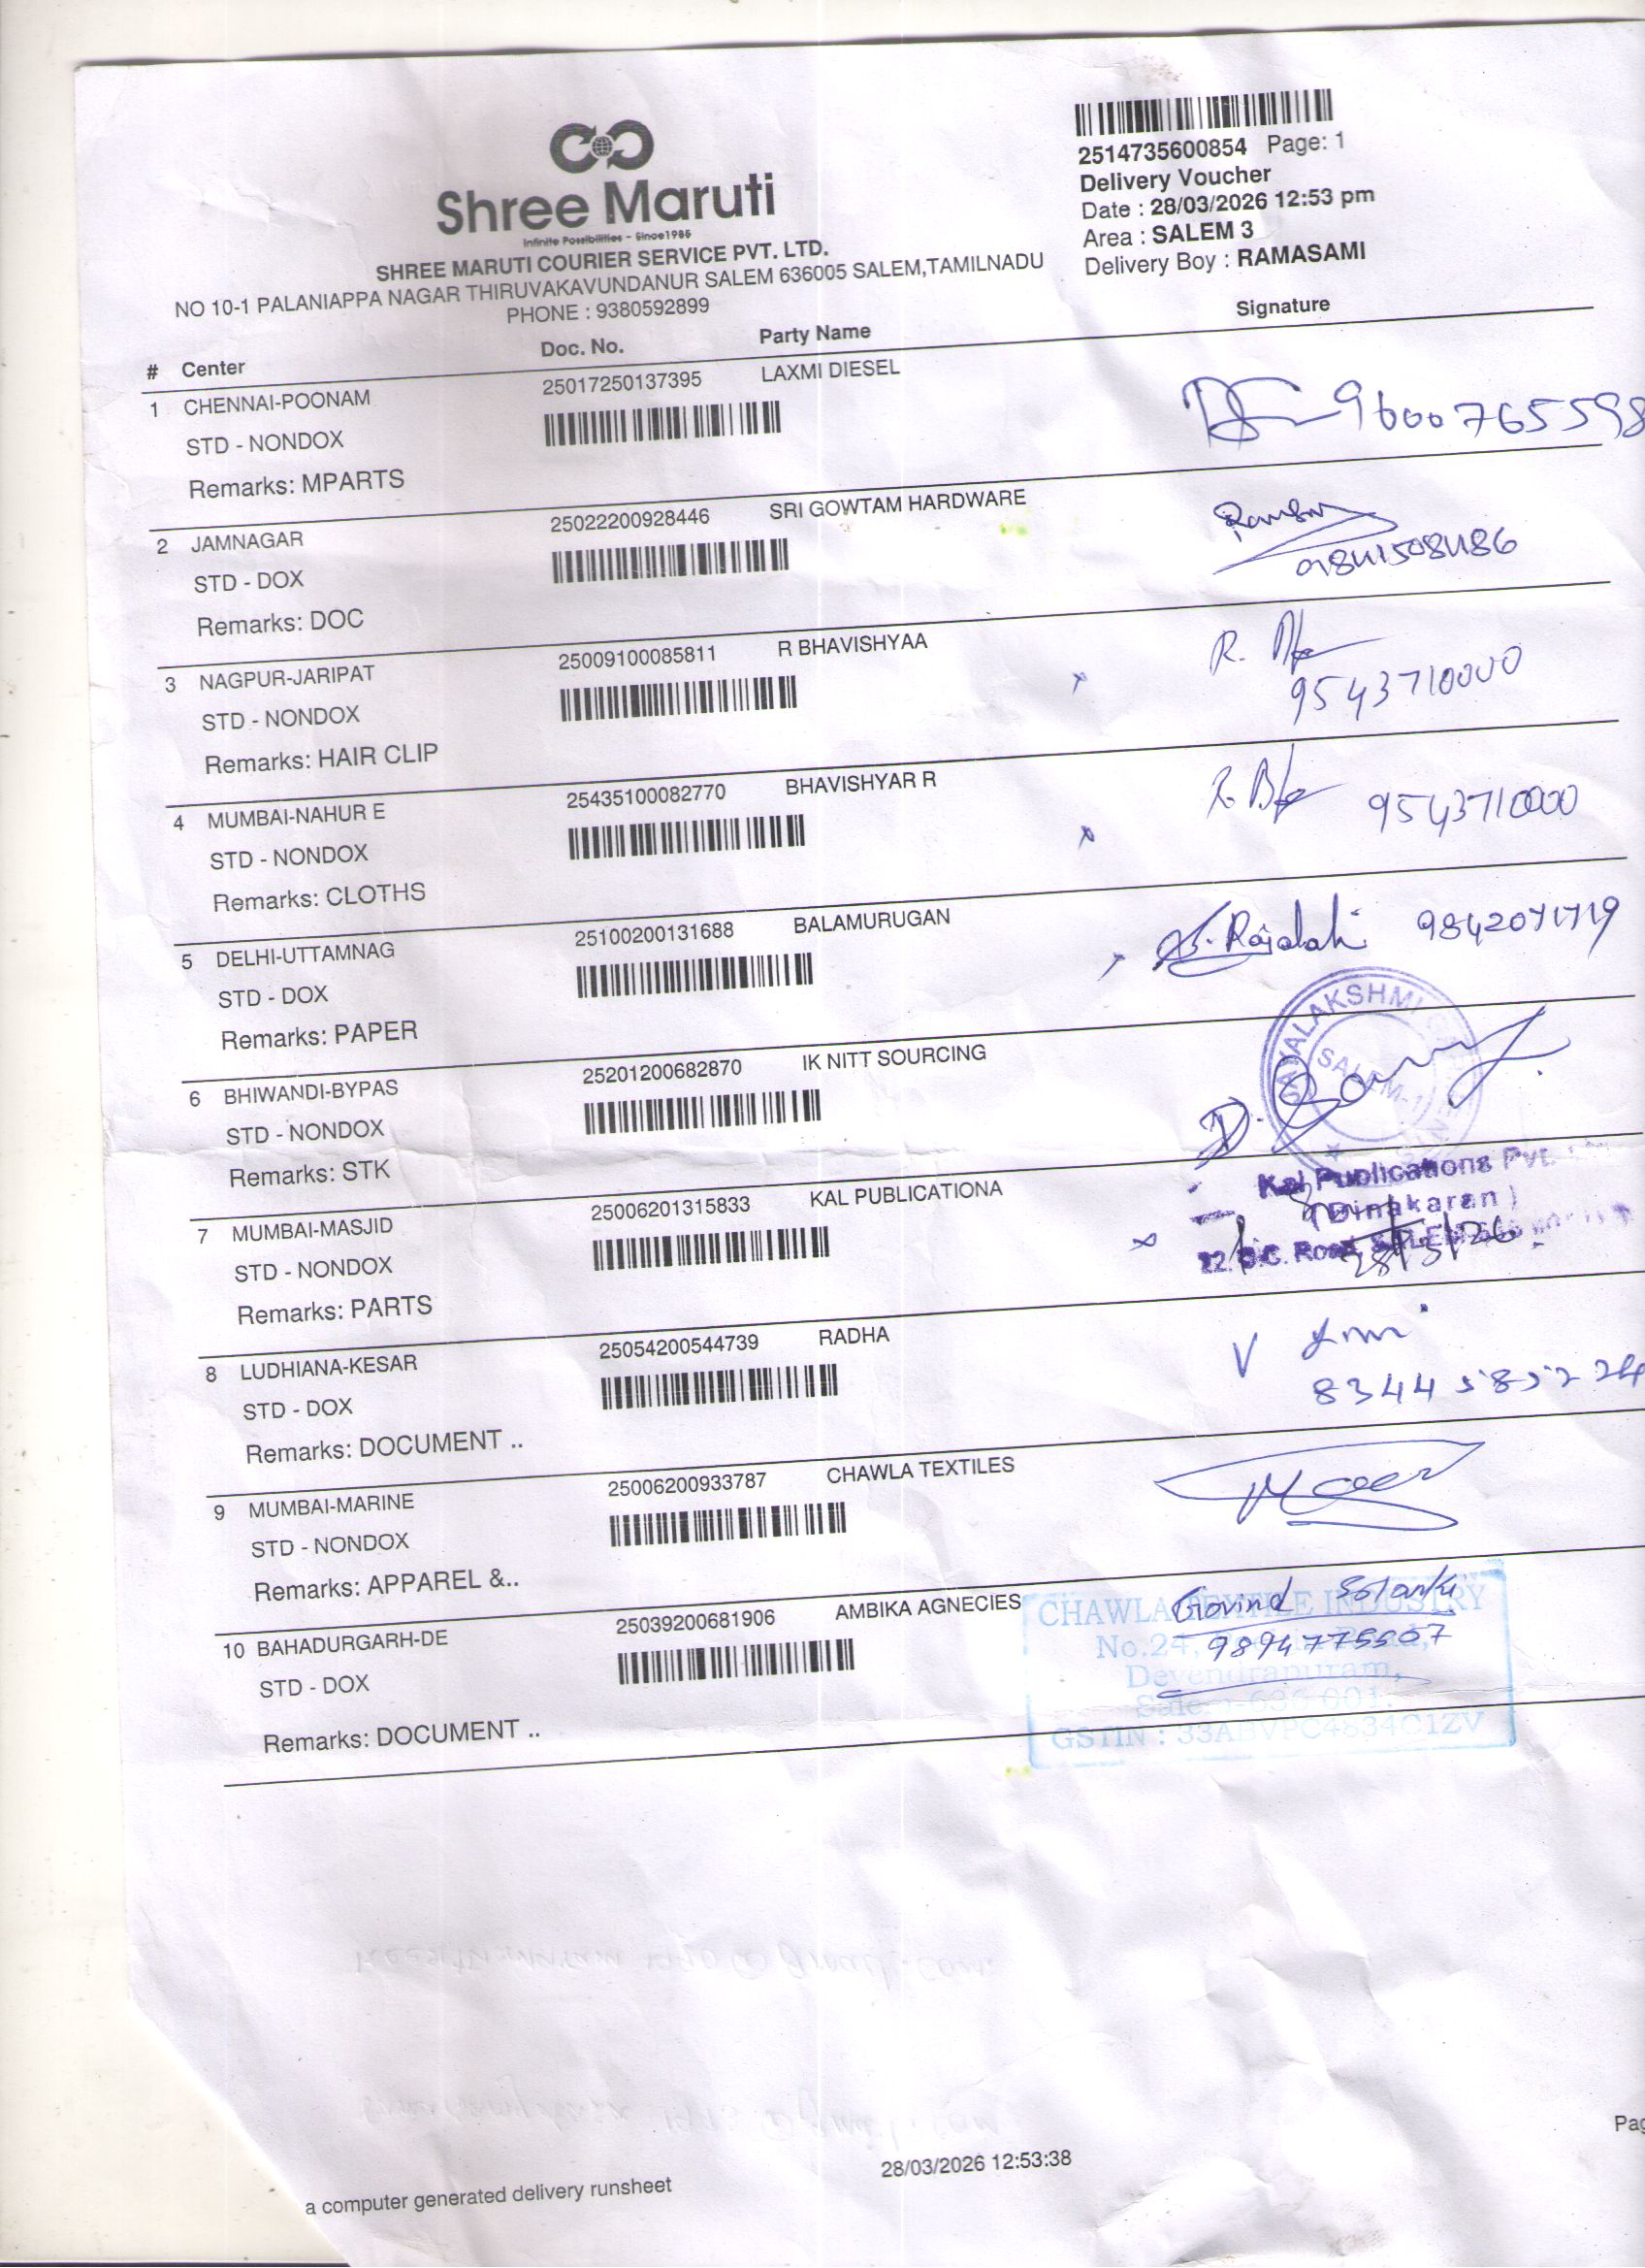 Shree Maruti
Infinite Possibilities - Since1985
SHREE MARUTI COURIER SERVICE PVT. LTD.
NO 10-1 PALANIAPPA NAGAR THIRUVAKAVUNDANUR SALEM 636005 SALEM,TAMILNADU
PHONE : 9380592899
2514735600854 Page: 1
Delivery Voucher
Date : 28/03/2026 12:53 pm
Area : SALEM 3
Delivery Boy : RAMASAMI
# Center Doc. No. Party Name Signature
1 CHENNAI-POONAM 25017250137395 LAXMI DIESEL
STD - NONDOX 9600765598
Remarks: MPARTS
2 JAMNAGAR 25022200928446 SRI GOWTAM HARDWARE
STD - DOX
Remarks: DOC
3 NAGPUR-JARIPAT 25009100085811 R BHAVISHYAA R.
STD - NONDOX 9543710000
Remarks: HAIR CLIP
4 MUMBAI-NAHUR E 25435100082770 BHAVISHYAR R R.
STD - NONDOX 9543710000
Remarks: CLOTHS
5 DELHI-UTTAMNAG 25100200131688 BALAMURUGAN
STD - DOX
Remarks: PAPER
6 BHIWANDI-BYPAS 25201200682870 IK NITT SOURCING
STD - NONDOX SALEM-1
Remarks: STK
7 MUMBAI-MASJID 25006201315833 KAL PUBLICATIONA
Kal Publications Pvt.
(Dinakaran)
STD - NONDOX 28/3/26
Remarks: PARTS
8 LUDHIANA-KESAR 25054200544739 RADHA
STD - DOX
Remarks: DOCUMENT ..
9 MUMBAI-MARINE 25006200933787 CHAWLA TEXTILES
STD - NONDOX
Remarks: APPAREL &..
10 BAHADURGARH-DE 25039200681906 AMBIKA AGNECIES
STD - DOX
Remarks: DOCUMENT ..
Govind Solanki
9894775507
CHAWLA TEXTILE INDUSTRY
No.24,
Devendrapuram,
Salem-636 001.
GSTIN :
28/03/2026 12:53:38
a computer generated delivery runsheet